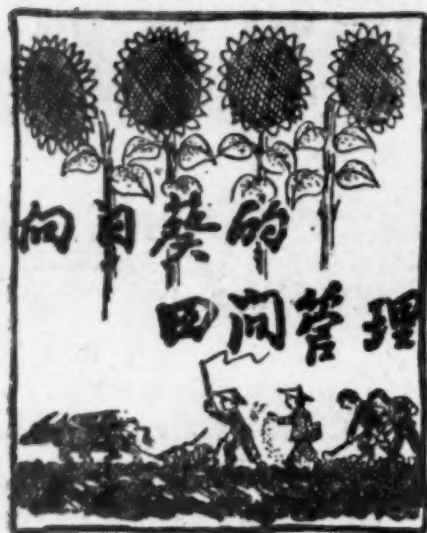 向日葵的
田间管理